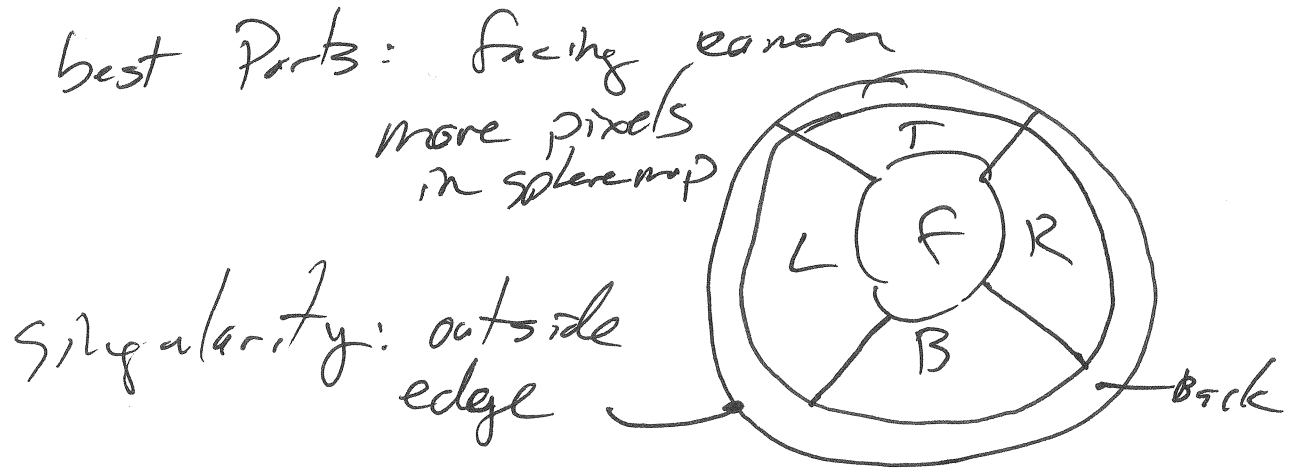 best Parts: facing camera
more pixels
in spheremap
T
L F R
B
singularity: outside
edge
Back